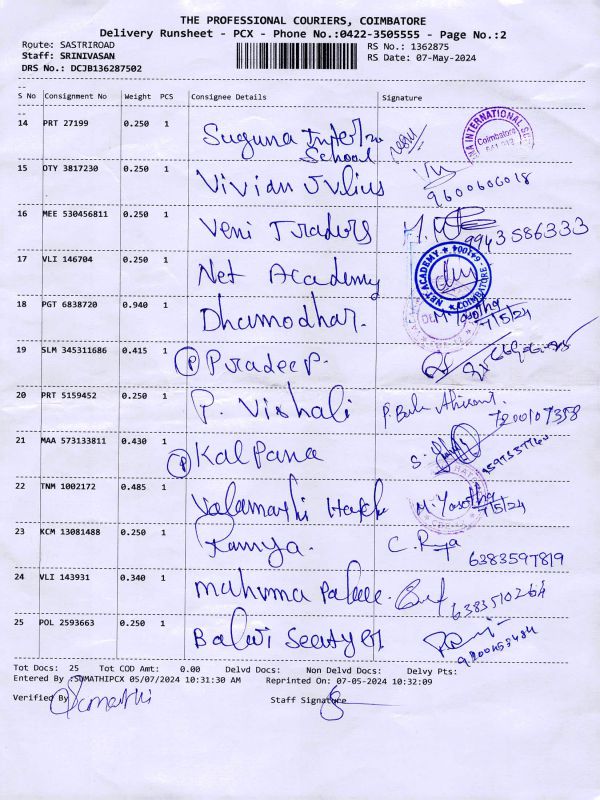 THE PROFESSIONAL COURIERS, COIMBATORE
Delivery Runsheet - PCX - Phone No.:0422-3505555 - Page No.:2
Route: SASTRIROAD RS No.: 1362875
Staff: SRINIVASAN RS Date: 07-May-2024
DRS No.: DCJB136287502
S No Consignment No Weight PCS Consignee Details Signature
14 PRT 27199 0.250 1 Suguna Intern School
15 OTY 3817230 0.250 1 Vivian Julius 9600606018
16 MEE 530456811 0.250 1 Veni Traders 9943586333
17 VLI 146704 0.250 1 Net Academy
NET ACADEMY COIMBATORE
18 PGT 6838720 0.940 1 Dhamodhar. M. Yasotha 7/5/24
19 SLM 345311686 0.415 1 P Pradeep.
20 PRT 5159452 0.250 1 P. Vishali 7200107358
21 MAA 573133811 0.430 1 P Kalpana
22 TNM 1002172 0.485 1 M. Yasotha 7/5/24
23 KCM 13081488 0.250 1 Ramya. 6383597819
24 VLI 143931 0.340 1 6383510264
25 POL 2593663 0.250 1
Tot Docs: 25 Tot COD Amt: 0.00 Delvd Docs: Non Delvd Docs: Delvy Pts:
Entered By :SUMATHIPCX 05/07/2024 10:31:30 AM Reprinted On: 07-05-2024 10:32:09
Verified By Sumathi Staff Signature